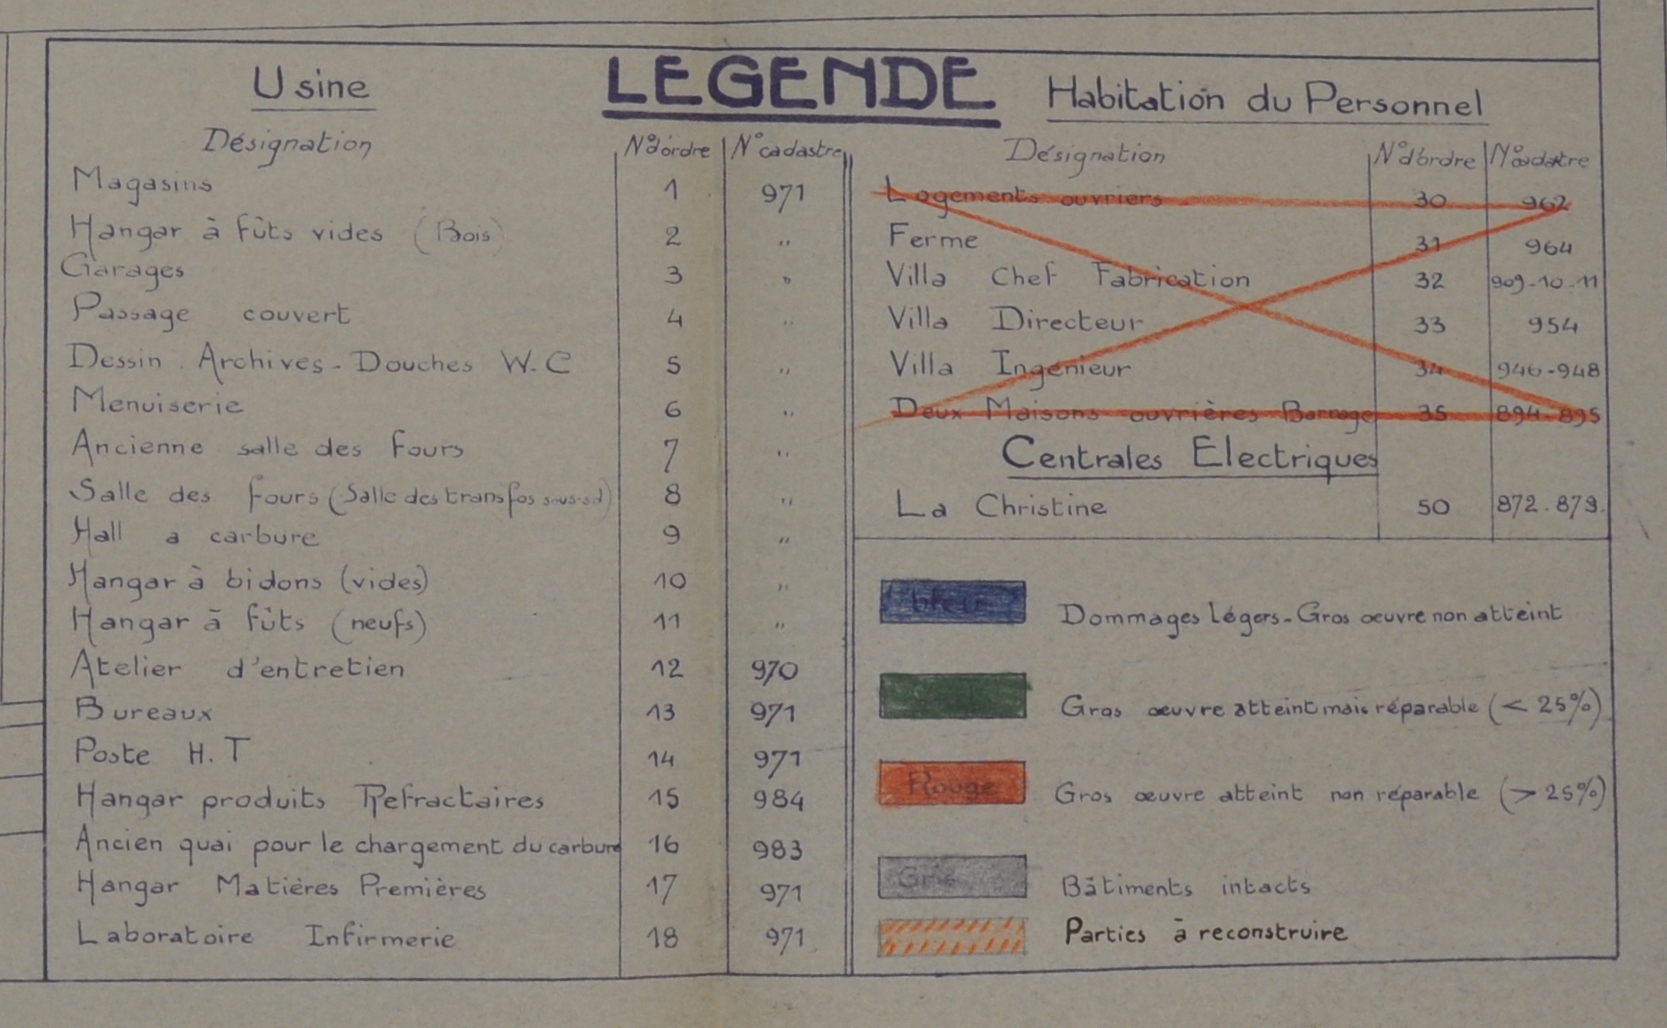 LEGENDE
Usine
Désignation N° d'ordre N° cadastre
Magasins 1 971
Hangar à fûts vides (Bois) 2 "
Garages 3 "
Passage couvert 4 "
Dessin . Archives - Douches W.C 5 "
Menuiserie 6 "
Ancienne salle des fours 7 "
Salle des fours (Salle des transfos sous-sol) 8 "
Hall a carbure 9 "
Hangar à bidons (vides) 10 "
Hangar à fûts (neufs) 11 "
Atelier d'entretien 12 970
Bureaux 13 971
Poste H.T 14 971
Hangar produits Refractaires 15 984
Ancien quai pour le chargement du carbure 16 983
Hangar Matières Premières 17 971
Laboratoire Infirmerie 18 971
Habitation du Personnel
Désignation N° d'ordre N° cadatre
Logements ouvriers 30 962
Ferme 31 964
Villa Chef Fabrication 32 909-10-11
Villa Directeur 33 954
Villa Ingénieur 34 946-948
Deux Maisons ouvrières Barrage 35 894-895
Centrales Electriques
La Christine 50 872.873.
bleu Dommages légers - Gros œuvre non atteint
Gros œuvre atteint mais réparable (< 25%)
Rouge Gros œuvre atteint non réparable (> 25%)
Gris Bâtiments intacts
Parties à reconstruire